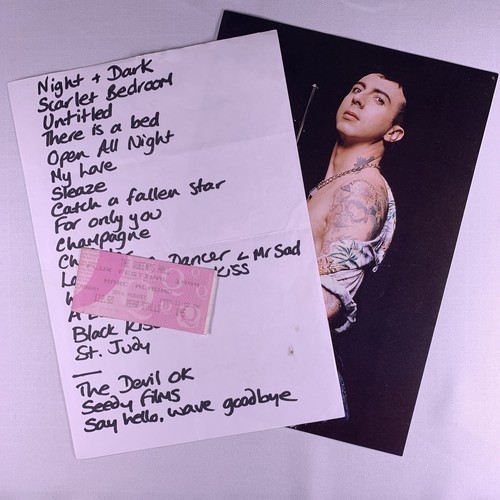 Night + Dark
Scarlet Bedroom
Untitled
There is a bed
Open All Night
My Love
Sleaze
Catch a fallen star
For only you
Champagne
Dancer < Mr Sad
Kiss
THE QUEEN'S HALL
FLUX FESTIVAL 1999
MARC ALMOND
Black Kiss
St. Judy
—
The Devil OK
Seedy Films
Say hello, wave goodbye